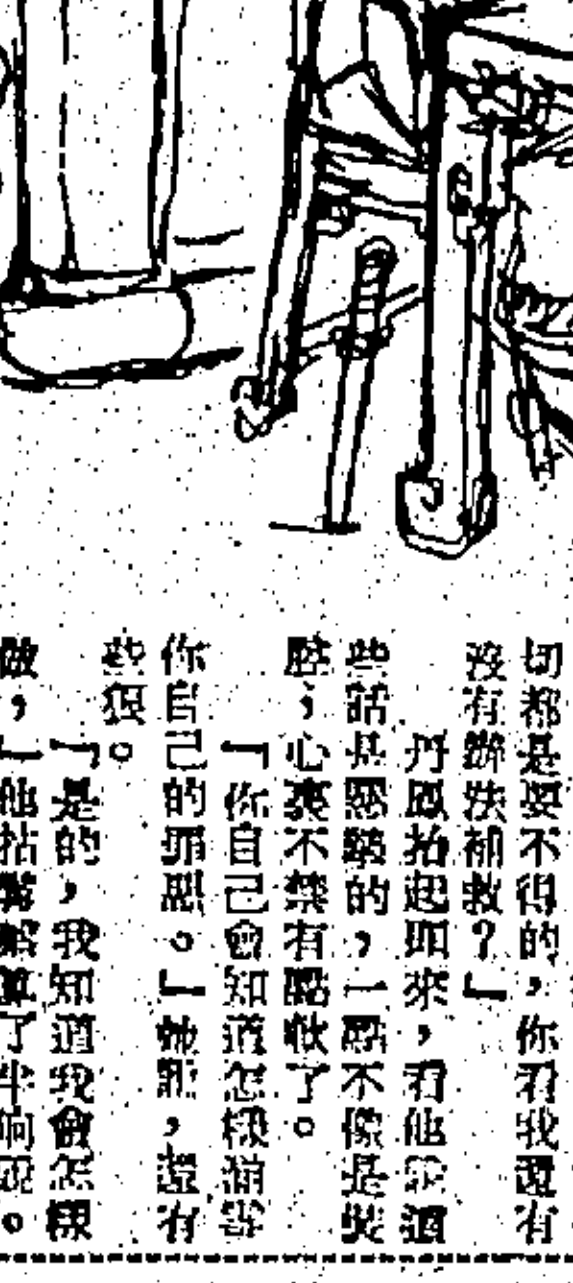 切都是要不得的，你看我還有
沒有辦法補救？』
丹鳳抬起頭來，看他說這
些話是懇摯的，一點不像是裝
腔，心裏不禁有點軟了。
『你自己會知道怎樣
你自己的罪惡。』她說，還有
些恨。
『是的，我知道我會怎樣
做，』他了半晌說。